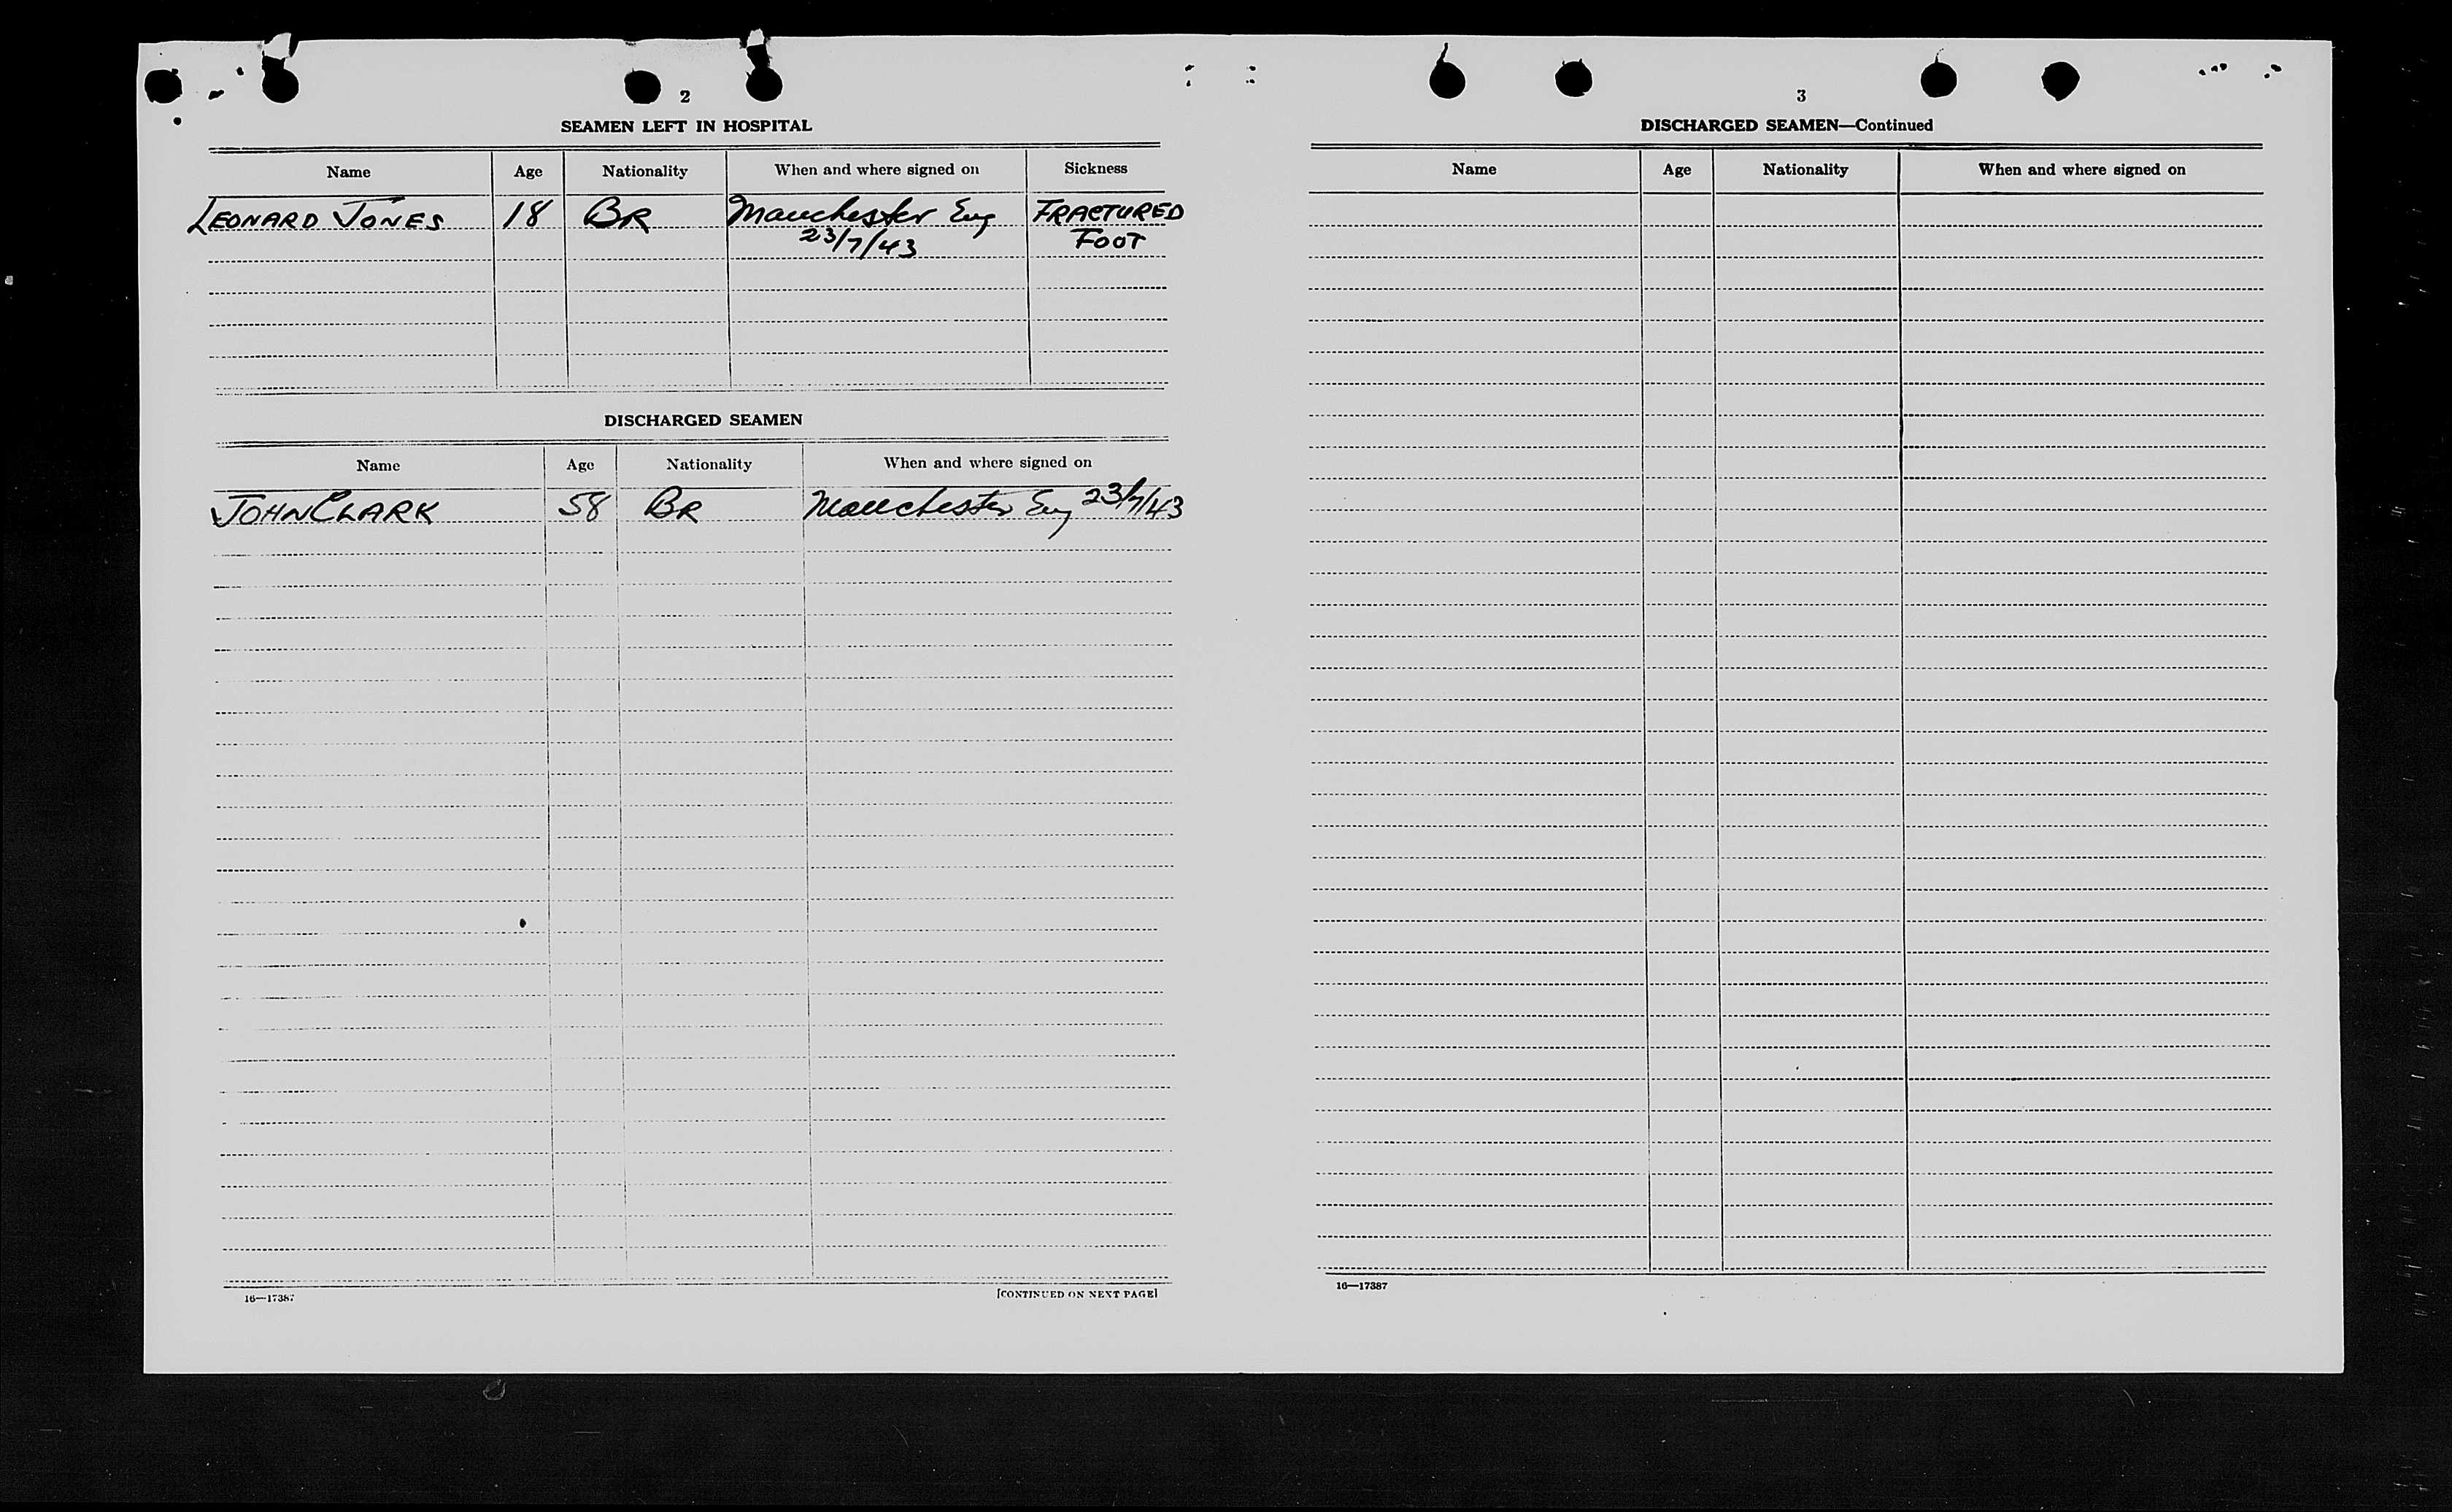 2
SEAMEN LEFT IN HOSPITAL
Name Age Nationality When and where signed on Sickness
LEONARD JONES 18 BR Manchester Eng FRACTURED
23/7/43 FOOT
DISCHARGED SEAMEN
Name Age Nationality When and where signed on
JOHN CLARK 58 BR Manchester Eng 23/7/43
16—17387
[CONTINUED ON NEXT PAGE]
3
DISCHARGED SEAMEN—Continued
Name Age Nationality When and where signed on
16—17387